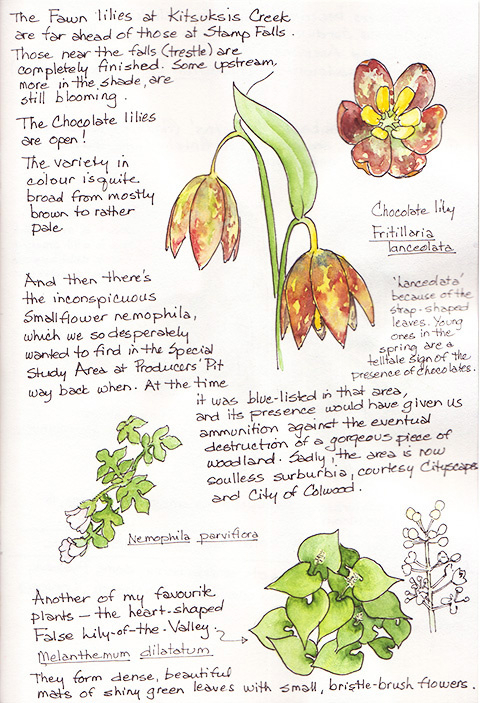 The Fawn lilies at Kitsuksis Creek
are far ahead of those at Stamp Falls.
Those near the falls (trestle) are
completely finished. Some upstream,
more in the shade, are
still blooming.
The Chocolate lilies
are open!
The variety in
colour is quite
broad from mostly
brown to rather
pale
Chocolate lily
Fritillaria
lanceolata
'lanceolata'
because of the
strap-shaped
leaves. Young
ones in the
spring are a
telltale sign of the
presence of chocolates.
And then there's
the inconspicuous
Smallflower nemophila,
which we so desperately
wanted to find in the Special
Study Area at Producers' Pit
way back when. At the time
it was blue-listed in that area,
and its presence would have given us
ammunition against the eventual
destruction of a gorgeous piece of
woodland. Sadly, the area is now
soulless surburbia, courtesy Cityscape
and City of Colwood.
Nemophila parviflora
Another of my favourite
plants — the heart-shaped
False Lily-of-the-Valley.
Melanthemum dilatatum
They form dense, beautiful
mats of shiny green leaves with small, bristle-brush flowers.